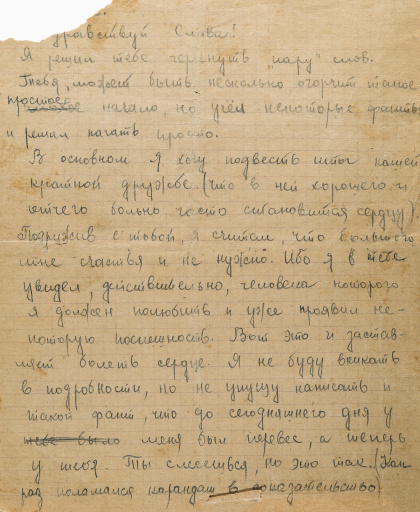 дравствуй Слава!
Я решил тебе черкнуть "пару" слов.
Тебя, может быть, несколько огорчит такое
простое начало, но учёл некоторые факты
и решил начать просто.
В основном я хочу подвесть итог нашей
краткой дружбе. (Что в ней хорошего и
отчего больно часто становится сердцу).
Подружив с тобой, я считал, что большего
мне счастья и не нужно. Ибо я в тебе
увидел, действительно, человека которого
я должен полюбить и уже проявил не-
которую поспешность. Вот это и застав-
ляет болеть сердце. Я не буду вникать
в подробности, но не упущу написать и
такой факт, что до сегодняшнего дня у
меня был перевес, а теперь
у тебя. Ты смеешься, но это так. (Как
раз поломался карандаш в доказательство)